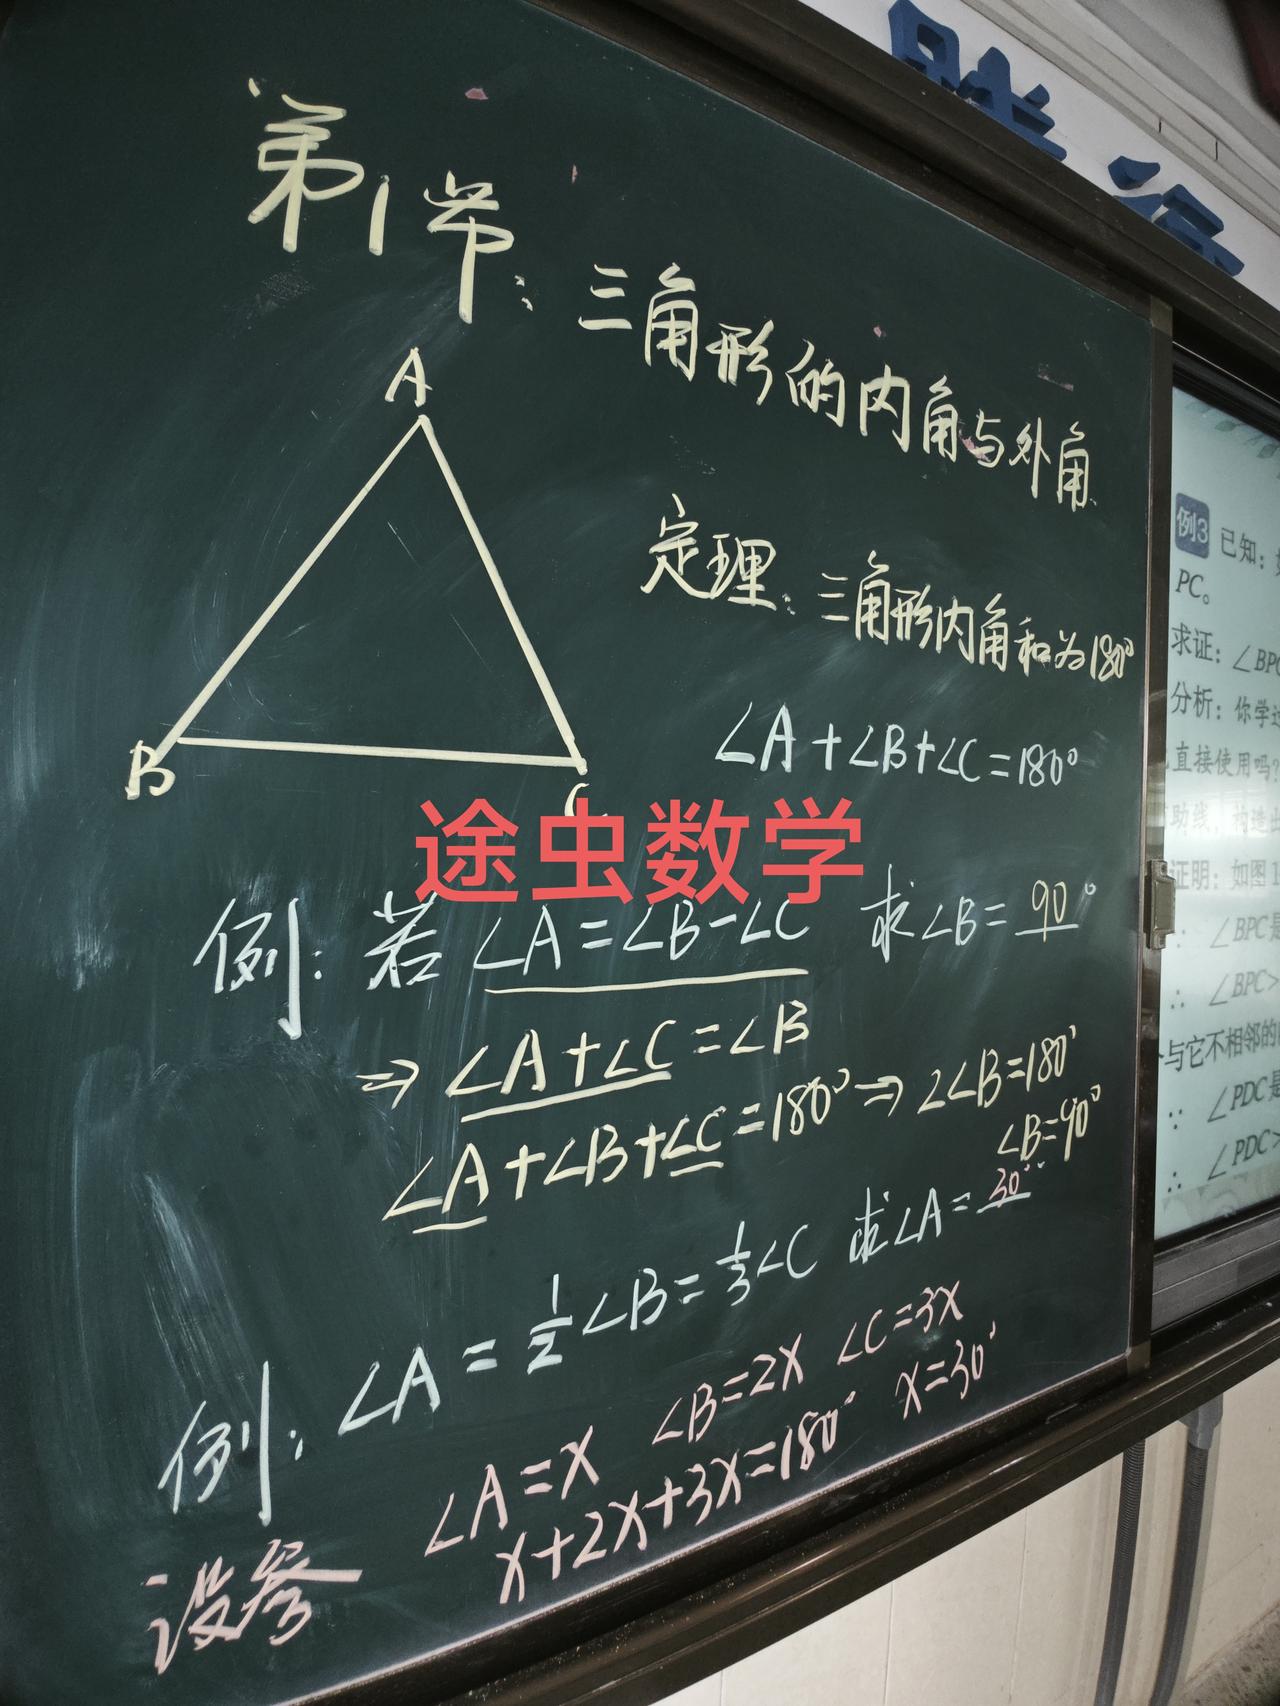 第1节：三角形的内角与外角
A
B
C
定理：三角形内角和为180°
∠A+∠B+∠C=180°
途虫数学
例：若 ∠A=∠B-∠C 求∠B=90°
⇒ ∠A+∠C=∠B
∠A+∠B+∠C=180° ⇒ 2∠B=180°
∠B=90°
例：∠A=1/2∠B=1/3∠C 求∠A=30°
设参 ∠A=x ∠B=2x ∠C=3x
x+2x+3x=180° x=30°
例3 已知：
PC。
求证：∠BPC
分析：你学
直接使用吗？
助线，构造
证明：如图1
∠BPC是
∴ ∠BPC>
与它不相邻的
∵ ∠PDC是
∴ ∠PDC>